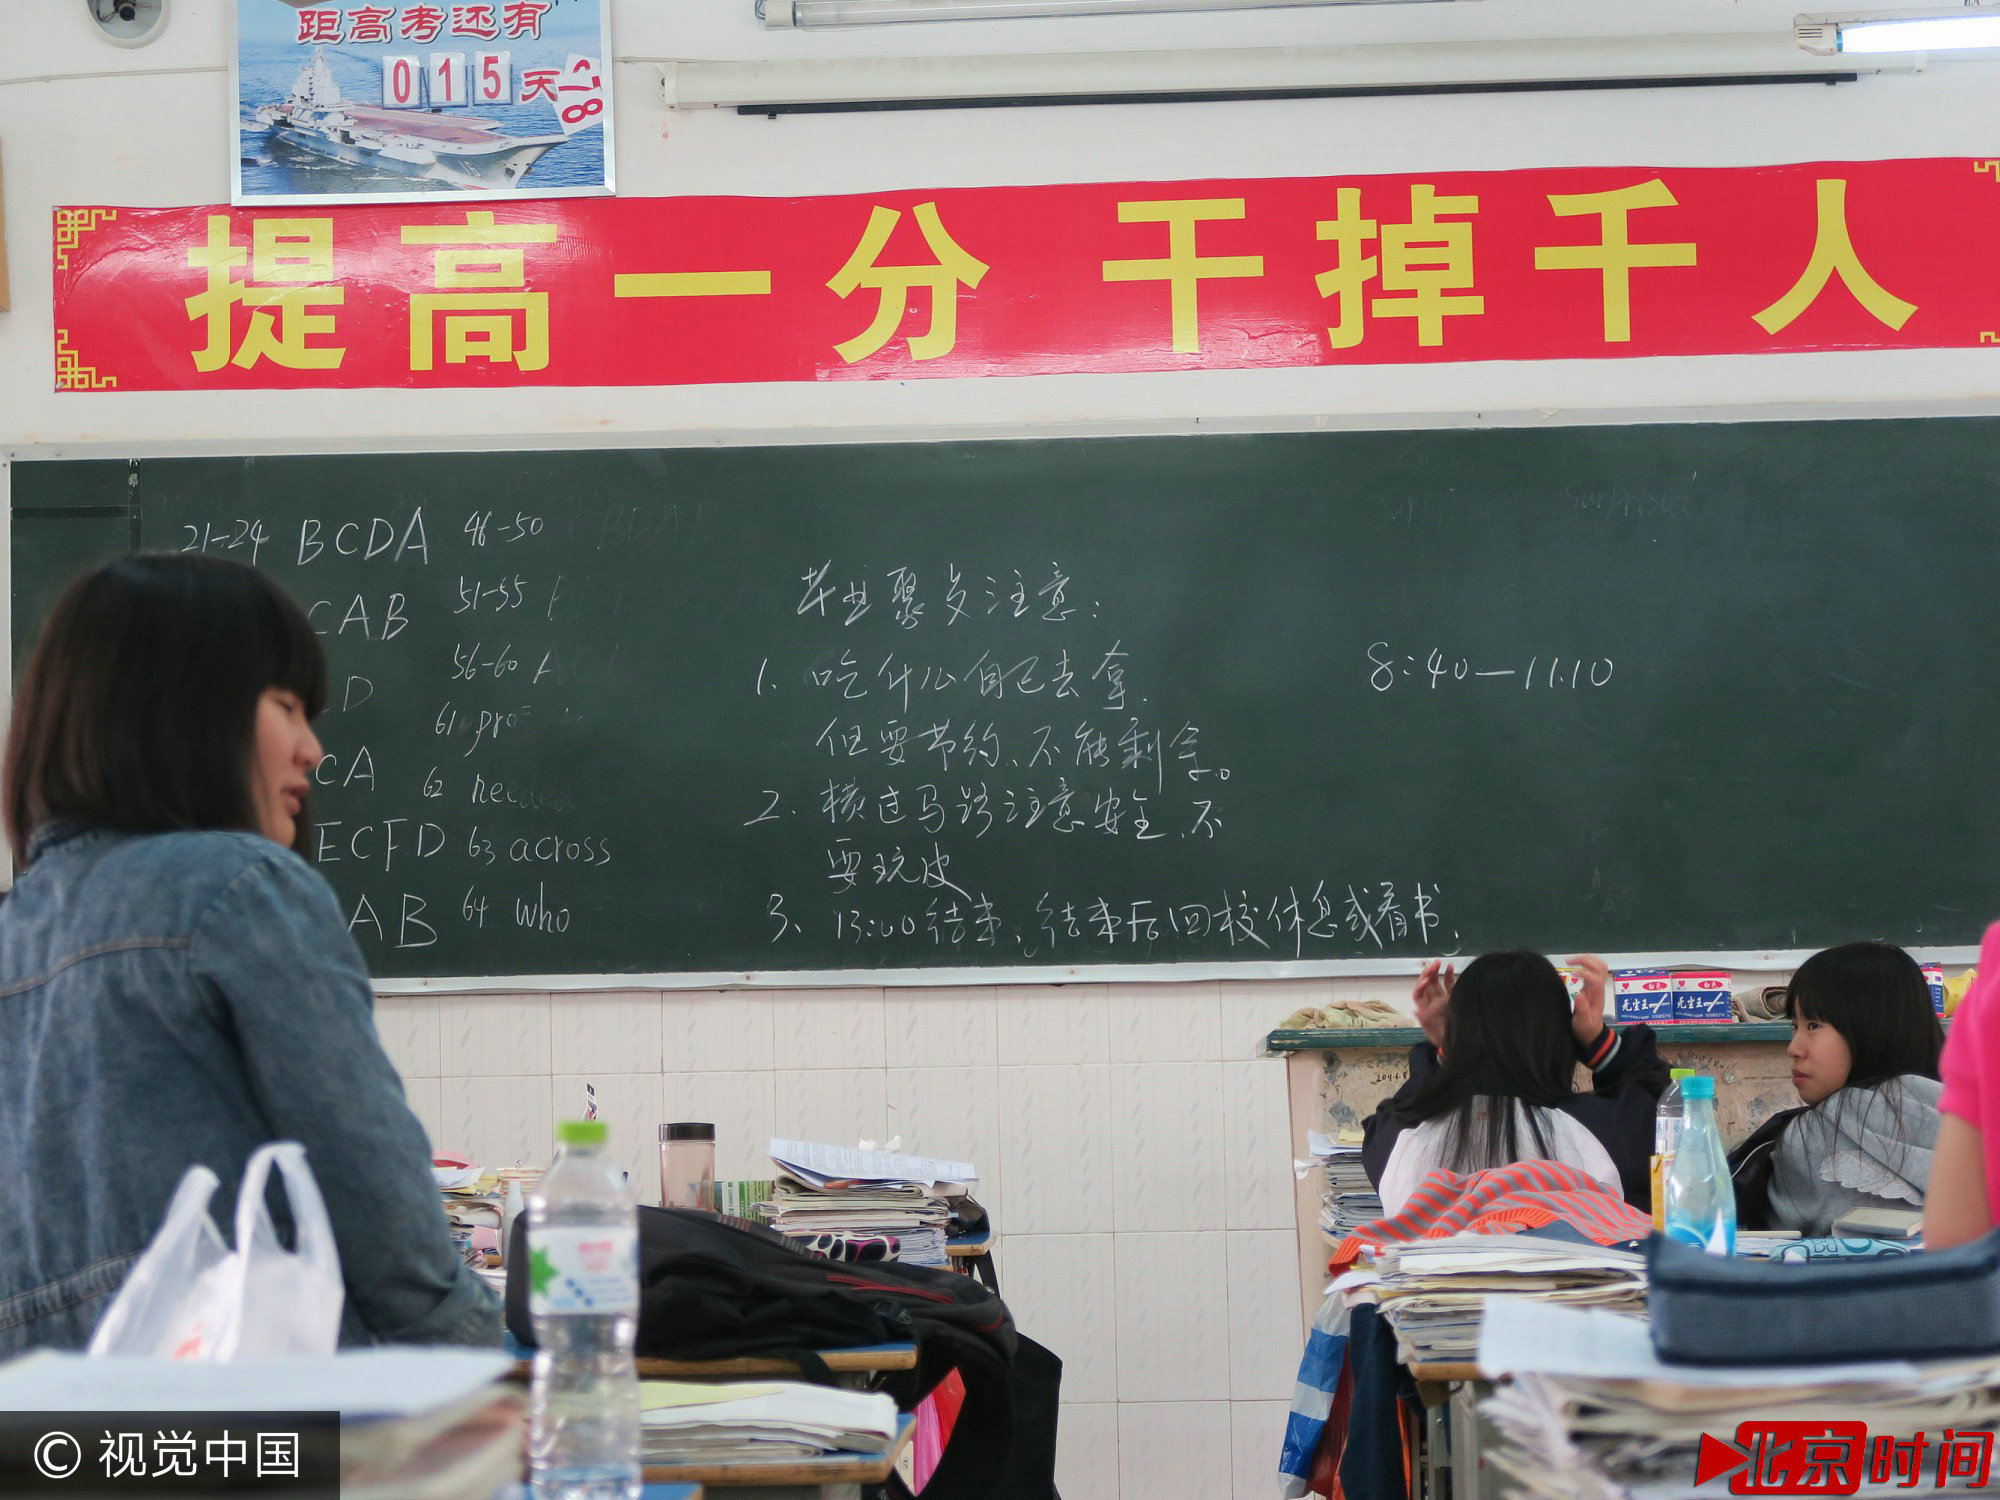 距高考还有
015天
提高一分 干掉千人
21-24 BCDA 46-50
CAB 51-55
D 56-60
61 pro
CA 62 needed
ECFD 63 across
AB 64 who
毕业聚岁注意:
1. 吃什么自己去拿.
但要节约、不能剩拿。
2. 横过马路注意安全、不
要玩皮
3、13:00结束、结束后回校休息或看书.
8:40—11.10
无尘王
无尘王
© 视觉中国
北京时间